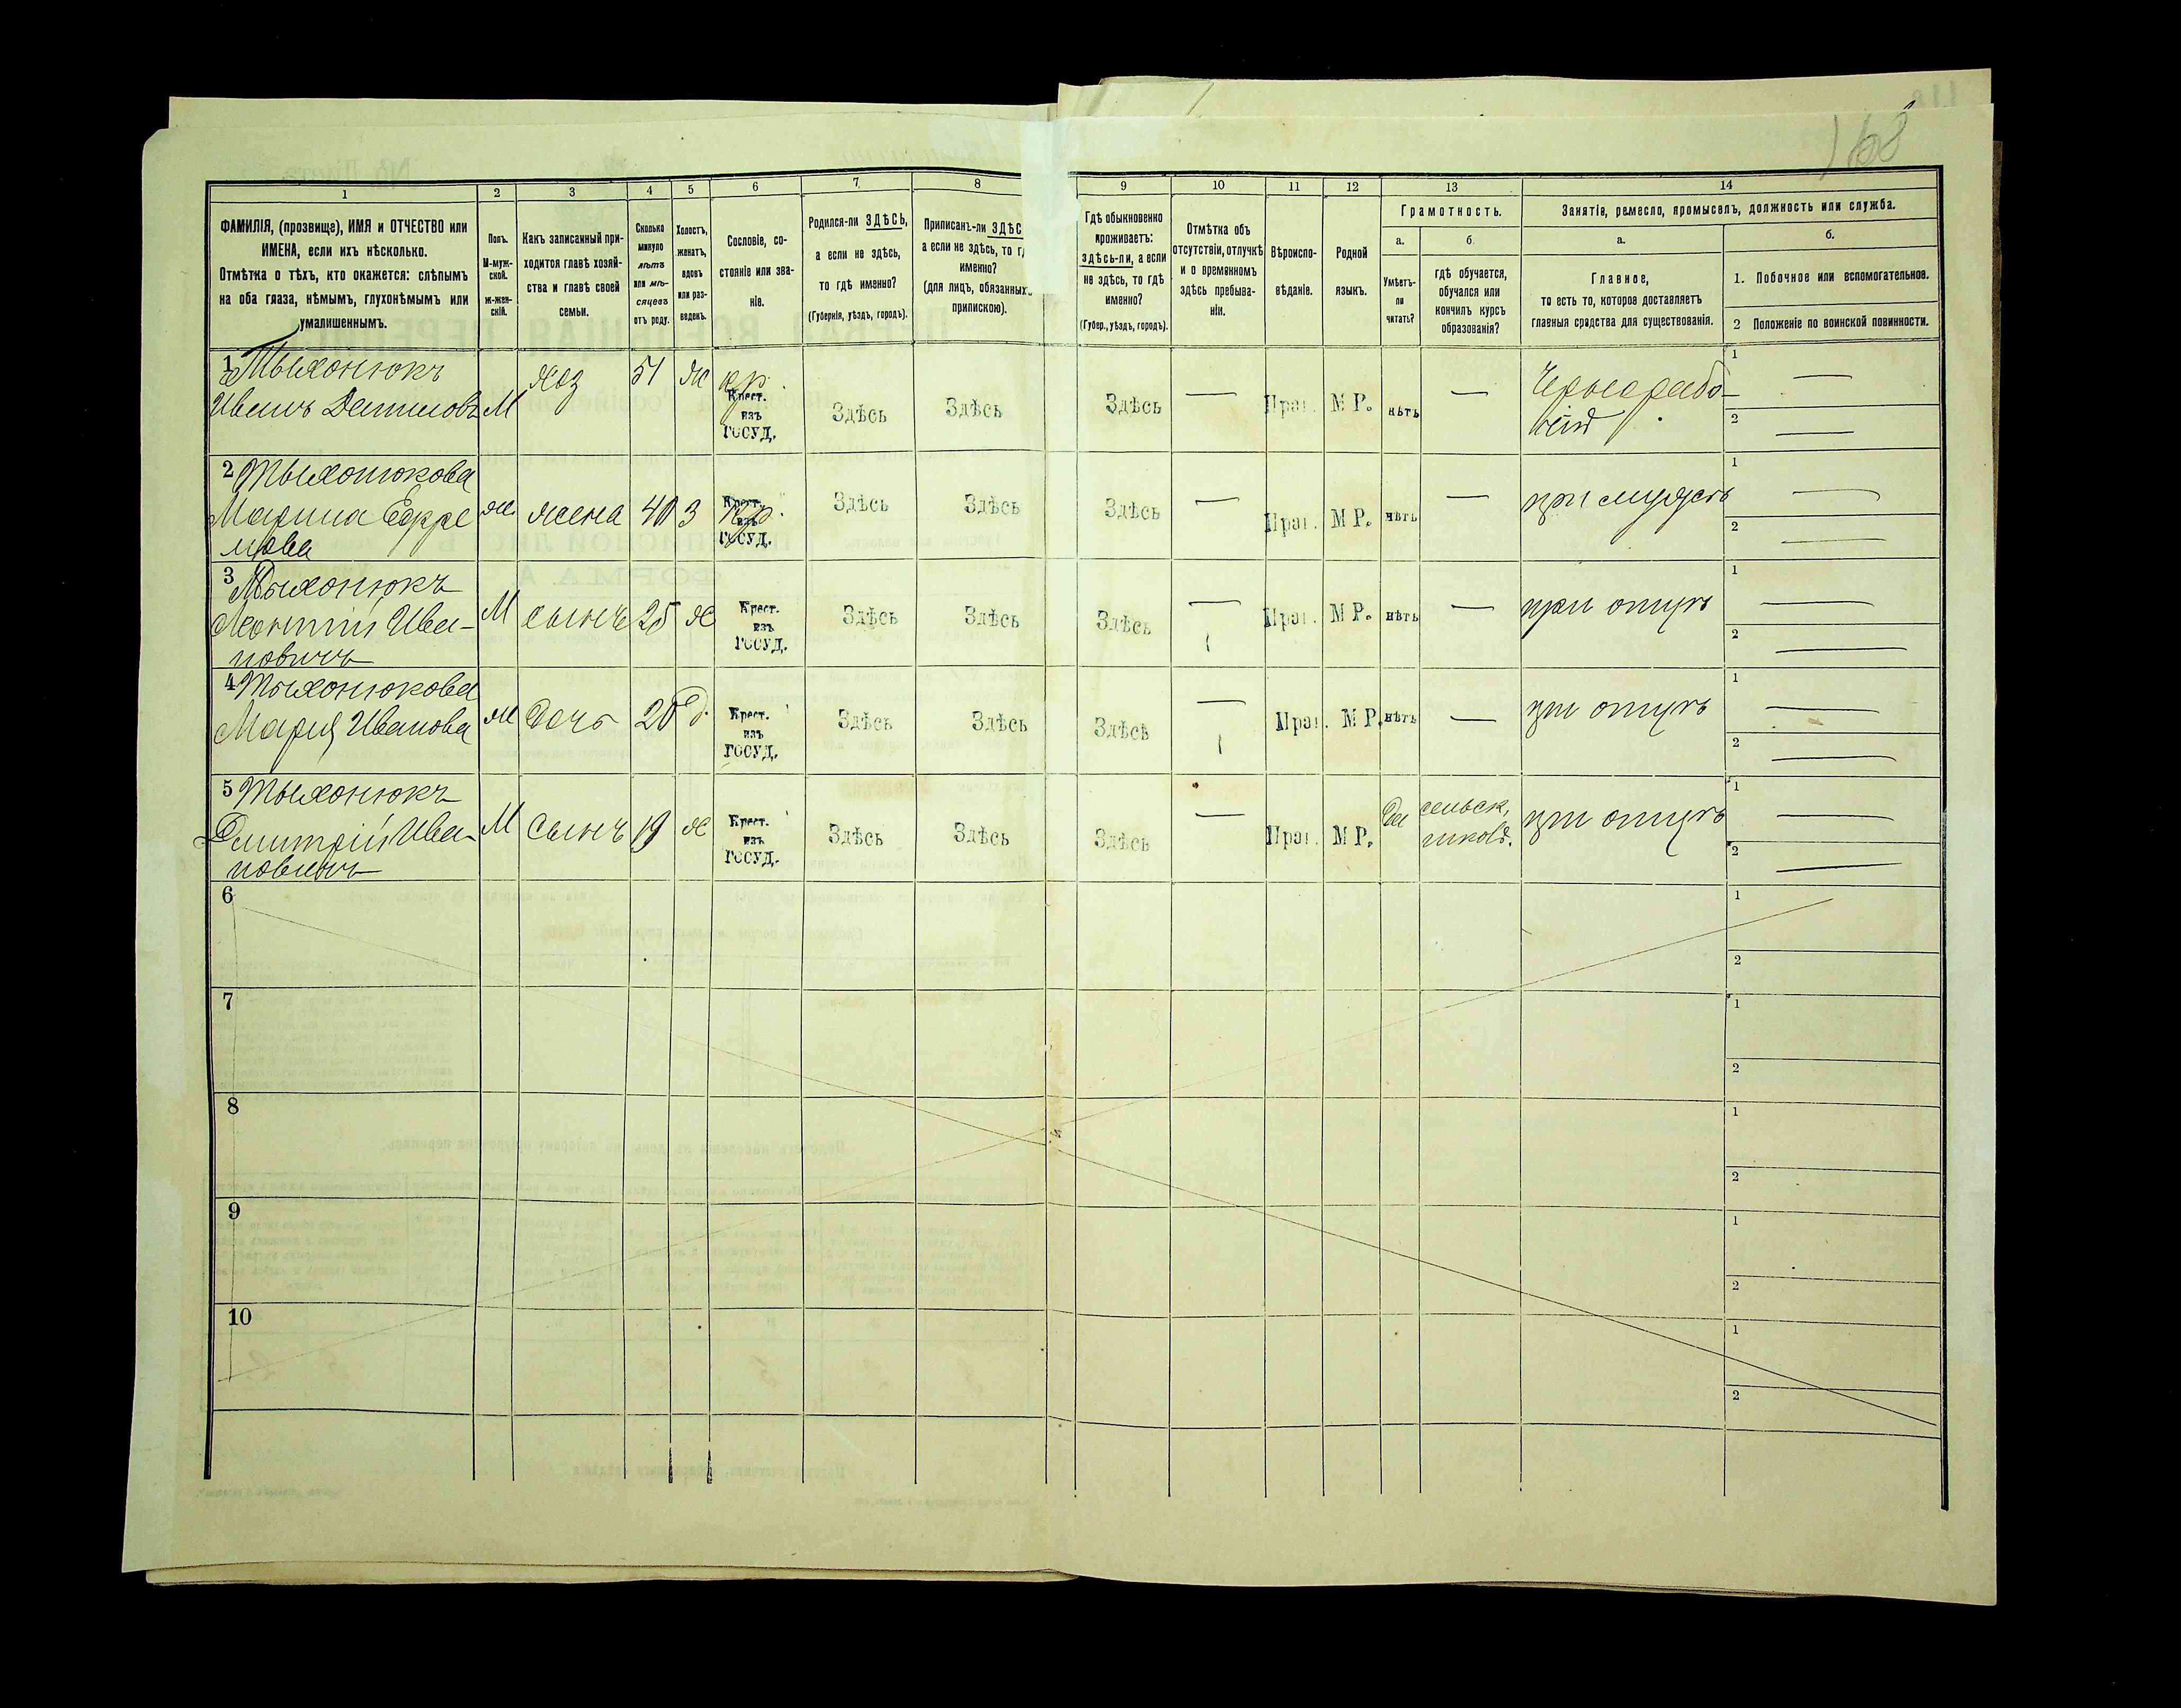 168
1
2
3
4
5
6
7
8
9
10
11
12
13
14
ФАМИЛІЯ, (прозвище), ИМЯ и ОТЧЕСТВО или
ИМЕНА, если ихъ нѣсколько.
Отмѣтка о тѣхъ, кто окажется: слѣпымъ
на оба глаза, нѣмымъ, глухонѣмымъ или
умалишеннымъ.
Полъ.
М-муж-
ской.
ж-жен-
скій.
Какъ записанный при-
ходится главѣ хозяй-
ства и главѣ своей
семьи.
Сколько
минуло
лѣтъ
или мѣ-
сяцевъ
отъ роду.
Холостъ,
женатъ,
вдовъ
или раз-
веденъ.
Сословіе, со-
стояніе или зва-
ніе.
Родился-ли ЗДѢСЬ,
а если не здѣсь,
то гдѣ именно?
(Губернія, уѣздъ, городъ).
Приписанъ-ли ЗДѢС
а если не здѣсь, то г
именно?
(для лицъ, обязанных
припискою).
Гдѣ обыкновенно
проживаетъ:
здѣсь-ли, а если
не здѣсь, то гдѣ
именно?
(Губер., уѣздъ, городъ).
Отмѣтка объ
отсутствіи, отлучкѣ
и о временномъ
здѣсь пребыва-
ніи.
Вѣроиспо-
вѣданіе.
Родной
языкъ.
Грамотность.
а.
Умѣетъ-
ли
читать?
б.
гдѣ обучается,
обучался или
кончилъ курсъ
образованія?
Занятія, ремесло, промыселъ, должность или служба.
а.
Главное,
то есть то, которое доставляетъ
главныя средства для существованія.
б.
1. Побочное или вспомогательное.
2 Положеніе по воинской повинности.
1 Тыхонюкъ
Иванъ Даниловъ М хоз 51 ж кр. Крест. изъ ГОСУД. Здѣсь Здѣсь Здѣсь — Прав. М Р. нѣтъ — Чернорабо- 1 —
чій 2 —
2 Тыхонюкова
Марина Ефре ж. жена 40 З кр. Крест. изъ ГОСУД. Здѣсь Здѣсь Здѣсь — Прав. М Р. нѣтъ — при мужѣ 1 —
мова 2 —
3 Тыхонюкъ
Леонтій Ива- М сынъ 25 ж Крест. изъ ГОСУД. Здѣсь Здѣсь Здѣсь — Прав. М Р. нѣтъ — при отцѣ 1 —
новичъ 2 —
4 Тыхонюкова
Марія Иванова ж Дочь 20 д. Крест. изъ ГОСУД. Здѣсь Здѣсь Здѣсь — Прав. М Р. нѣтъ — при отцѣ 1 —
2 —
5 Тыхонюкъ
Дмитрій Ива- М сынъ 19 ж Крест. изъ ГОСУД. Здѣсь Здѣсь Здѣсь — Прав. М Р. Да сельск. школѣ. при отцѣ 1 —
новичъ 2 —
6 1
2
7 1
2
8 1
2
9 1
2
10 1
2